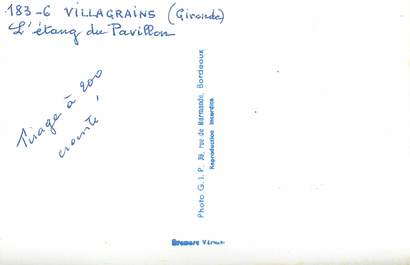 183-6 VILLAGRAINS (Gironde)
L'étang du Pavillon
Tirage à 200
Photo G.I.P. 39, rue de Marmande, Bordeaux
Reproduction interdite